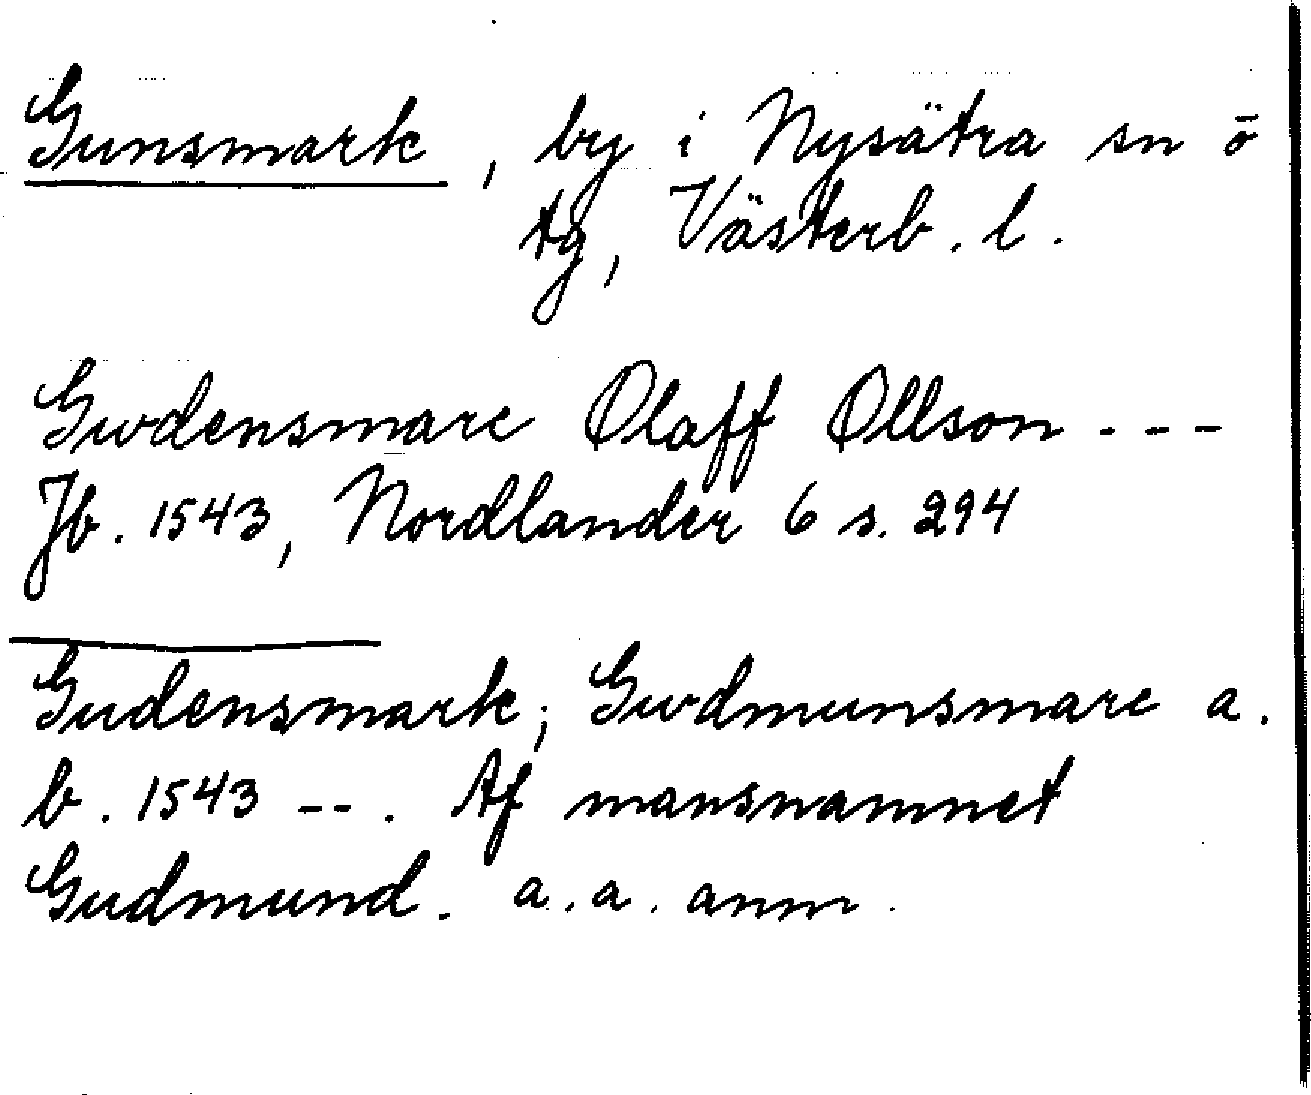 Gunsmark, by i Nysätra sn o
tg, Västerb. l.
Gwdensmarc Olaff Ollson ---
Jb. 1543, Nordlander 6 s. 294
Gudensmark; Gwdmunsmarc a.
b. 1543 --. Af mansnamnet
Gudmund. a. a. anm.